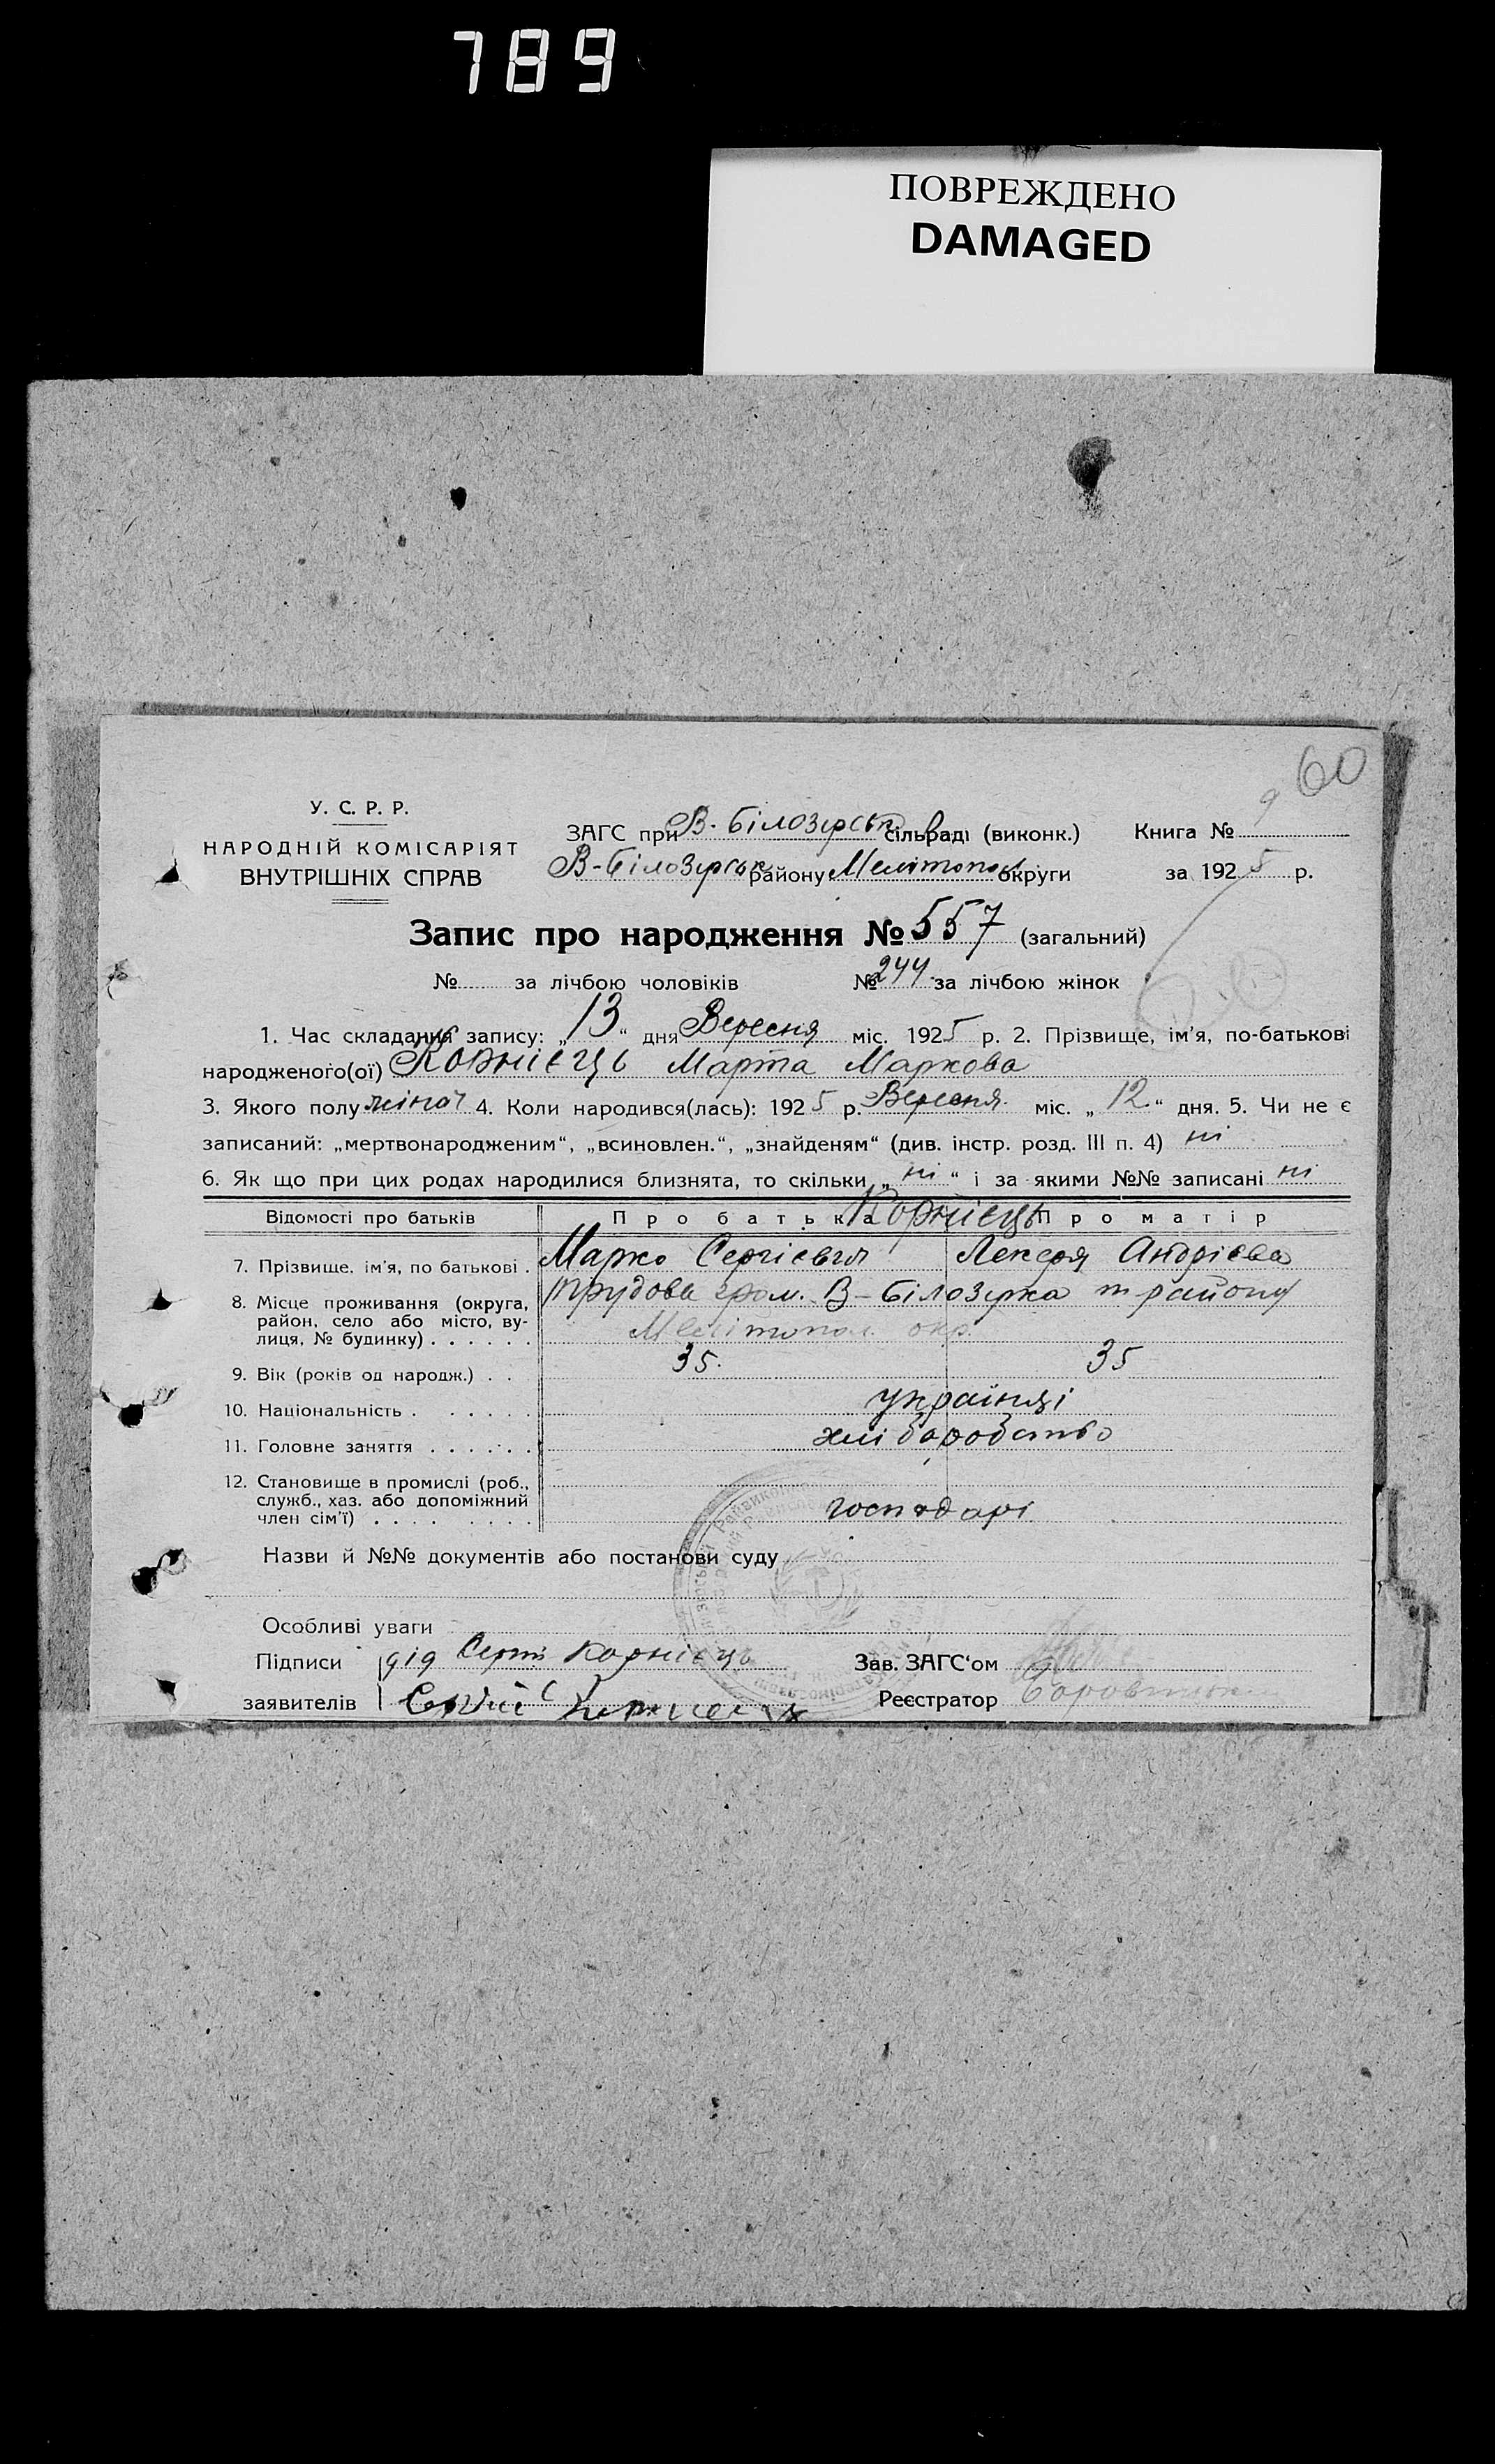 789
ПОВРЕЖДЕНО
DAMAGED
60
У. С. Р. Р.
НАРОДНІЙ КОМІСАРІЯТ
ВНУТРІШНІХ СПРАВ
ЗАГС при В-Білозірськ сільраді (виконк.) Книга №
В-Білозірськ району Мелітопол округи за 1925 р.
Запис про народження № 557 (загальний)
№ за лічбою чоловіків № 244 за лічбою жінок
1. Час складання запису: „13“ дня Вересня міс. 1925 р. 2. Прізвище, ім'я, по-батькові
народженого(ої) Корнієць Марта Маркова
3. Якого полу жіноч 4. Коли народився(лась): 1925 р. Вересня міс. „12“ дня. 5. Чи не є
записаний: „мертвонародженим“, „всиновлен.“, „знайденям“ (див. інстр. розд. III п. 4) ні
6. Як що при цих родах народилися близнята, то скільки „ні“ і за якими №№ записані ні
Відомості про батьків Про батька Корнієць Про матір
7. Прізвище, ім'я, по батькові . Марко Сергієвич Лексоя Андрієва
8. Місце проживання (округа, район, село або місто, вулиця, № будинку) . . . . . . Трудова гром. В-Білозірка т району
Мелітопол. окр.
9. Вік (років од народж.) . . 35. 35
10. Національність . . . . . . українці
11. Головне заняття . . . . . . хліборобство
12. Становище в промислі (роб., служб., хаз. або допоміжний член сім'ї) . . . . . . . . господарі
Назви й №№ документів або постанови суду
Особливі уваги
Підписи дід Сергій Корнієць Зав. ЗАГС'ом
заявителів Сергій Реєстратор